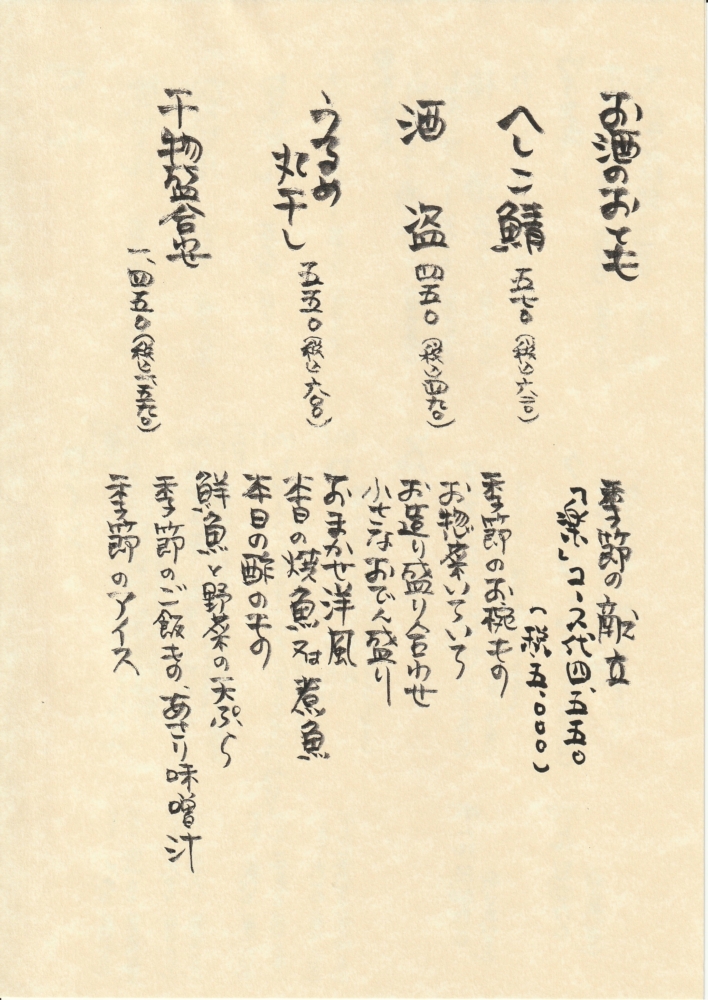 お酒のおとも
へしこ鯖 五七〇(税込六二〇)
酒盗 四五〇(税込四九〇)
うるめ
丸干し 五五〇(税込六〇〇)
干物盛合せ
一、四五〇(税込一、五九〇)
季節の献立
「楽」コース代四、五五〇
(税五、〇〇〇)
季節のお椀もの
お惣菜いろいろ
お造り盛り合わせ
小さなおでん盛り
おまかせ洋風
本日の焼魚又は煮魚
本日の酢のもの
鮮魚と野菜の天ぷら
季節のご飯もの、あさり味噌汁
季節のアイス